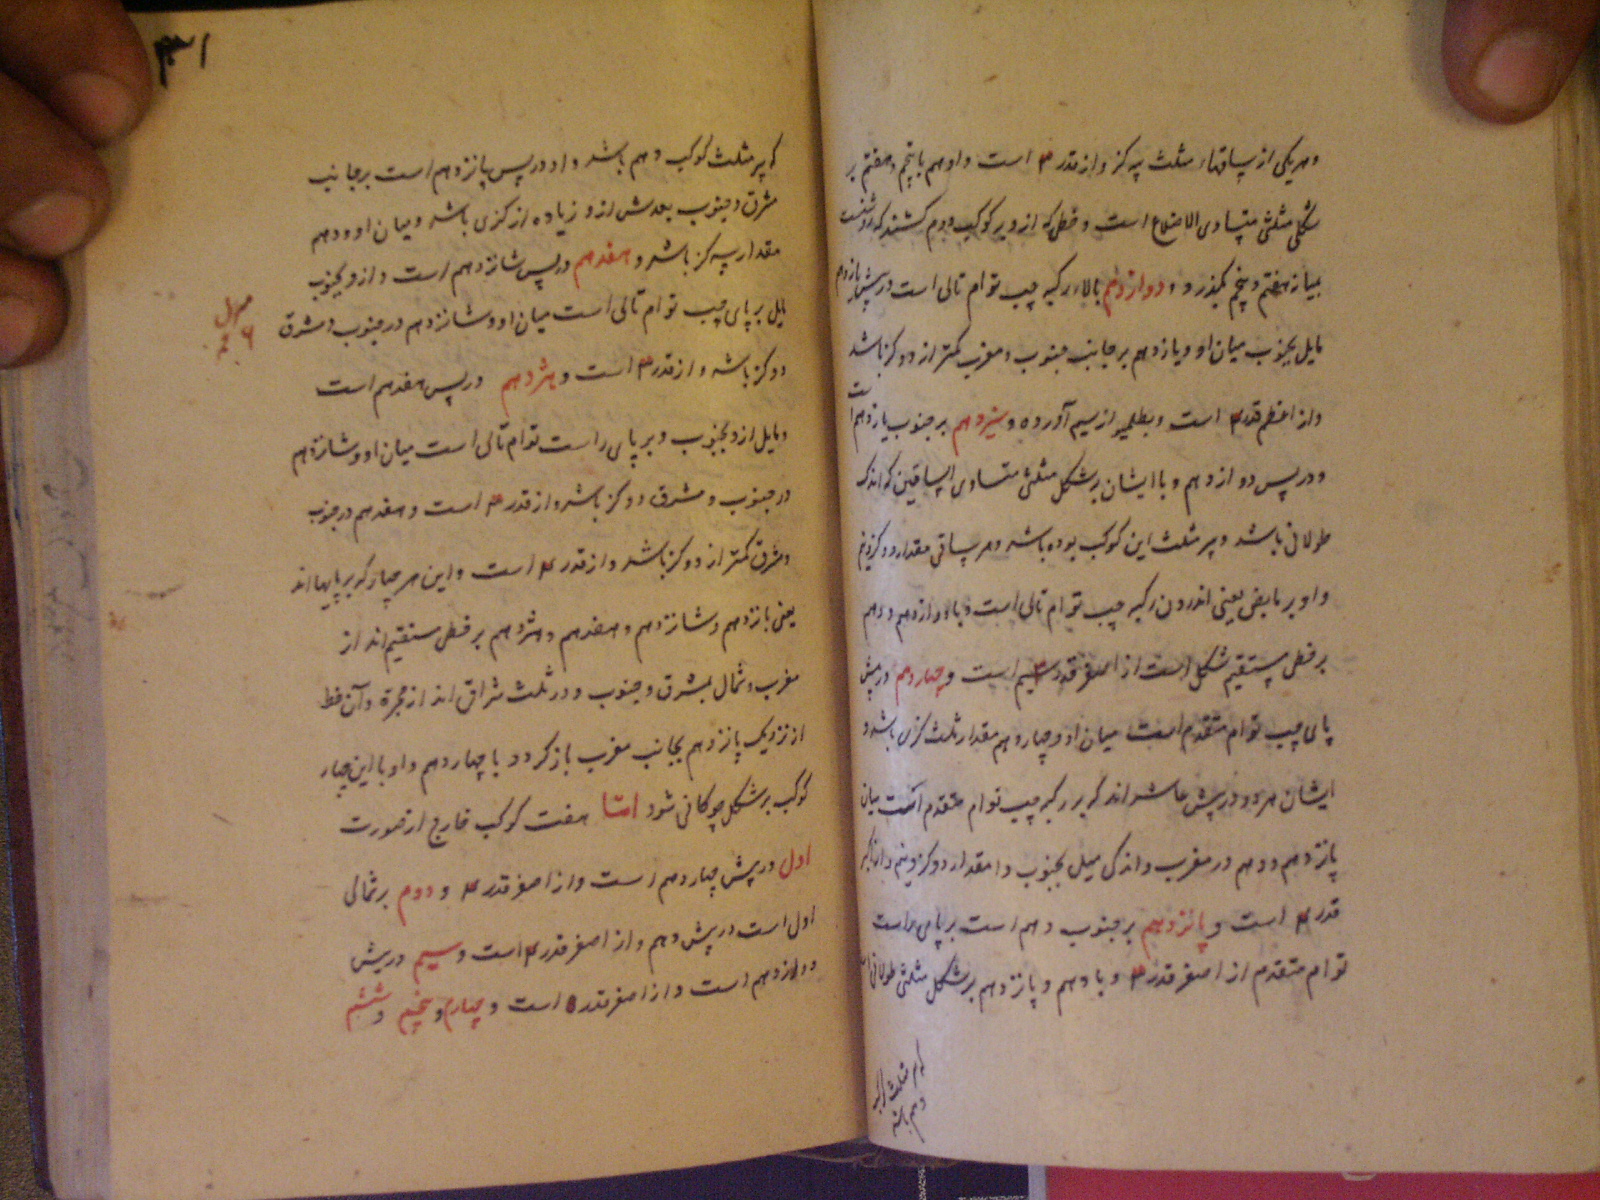 وهر یکی از ساقهاء مثلث سه کز و از قدر ۳ است و او هم با پنجم و هفتم بر
شکل مثلثی متساوی الاضلاع است و خطی که از و بر کوکب دوم کشند که روشنست
میانه هفتم و پنجم بگذرد و دوازدهم بالاء رکبه چپ توام تالی است در پیش یازدهم
مایل بجنوب میان او و یازدهم بر جانب جنوب و مغرب کمتر از دو کز باشد
و از اعظم قدر ۴ است و بطلمیوس از سیم آورده و سیزدهم بر جنوب یازدهم است
و در پس دوازدهم و با ایشان بر شکل مثلثی متساوی الساقین که اندک
طولانی باشد و سر مثلث این کوکب بوده باشد و هر ساقی مقدار دو کز و نیم
و او بر مابض یعنی اندرون رکبه چپ توام تالی است و با دوازدهم و دهم
بر خطی مستقیم شکل است از اصغر قدر سیم است و چهاردهم در پیش
پای چپ توام متقدم است میان او و چهاردهم مقدار ثلث کزی باشد و
ایشان هر دو در پیش عاشراند که بر رکبه چپ توام متقدم است میان
پانزدهم و دهم در مغرب و اندکی میل بجنوب و امقدار دو کز و نیم و از اکبر
قدر ۴ است و پانزدهم بر جنوب دهم است بر پای راست
توام متقدم از اصغر قدر ۳ و با دهم و پانزدهم بر شکل مثلثی طولانی است
که سر مثلث کوکب
دهم باشد
۳۱
که سر مثلث کوکب دهم باشد و او در پس پانزدهم است بر جانب
مشرق و جنوب بعدش از و زیاده از کزی باشد و میان او و دهم
مقدار سه کز باشد و هفدهم در پس شانزدهم است و از و بجنوب
مایل بر پای چپ توام تالی است میان او و شانزدهم در جنوب و مشرق
دو کز باشد و از قدر ۳ است و هژدهم در پس هفدهم است
و مایل از و بجنوب و بر پای راست توام تالی است میان او و شانزدهم
در جنوب و مشرق دو کز باشد و از قدر ۴ است و هفدهم در جنوب
و مشرق کمتر از دو کز باشد و از قدر ۴ است و این هر چهار که بر پایها اند
یعنی پانزدهم و شانزدهم و هفدهم و هژدهم بر خطی مستقیم اند از
مغرب و شمال بمشرق و جنوب و در ثلث شراق اند از مجرة و آن خط
از نزدیک پانزدهم بجانب مغرب باز کردد با چهاردهم و او با این چهار
کوکب بر شکل چوکانی شود اما هفت کوکب خارج از صورت
اول در پیش چهاردهم است و از اصغر قدر ۴ و دوم بر شمالی
اول است در پیش دهم و از اصغر قدر ۴ است و سیم در پیش
دوازدهم است و از اصغر قدر ۵ است و چهارم و پنجم و ششم